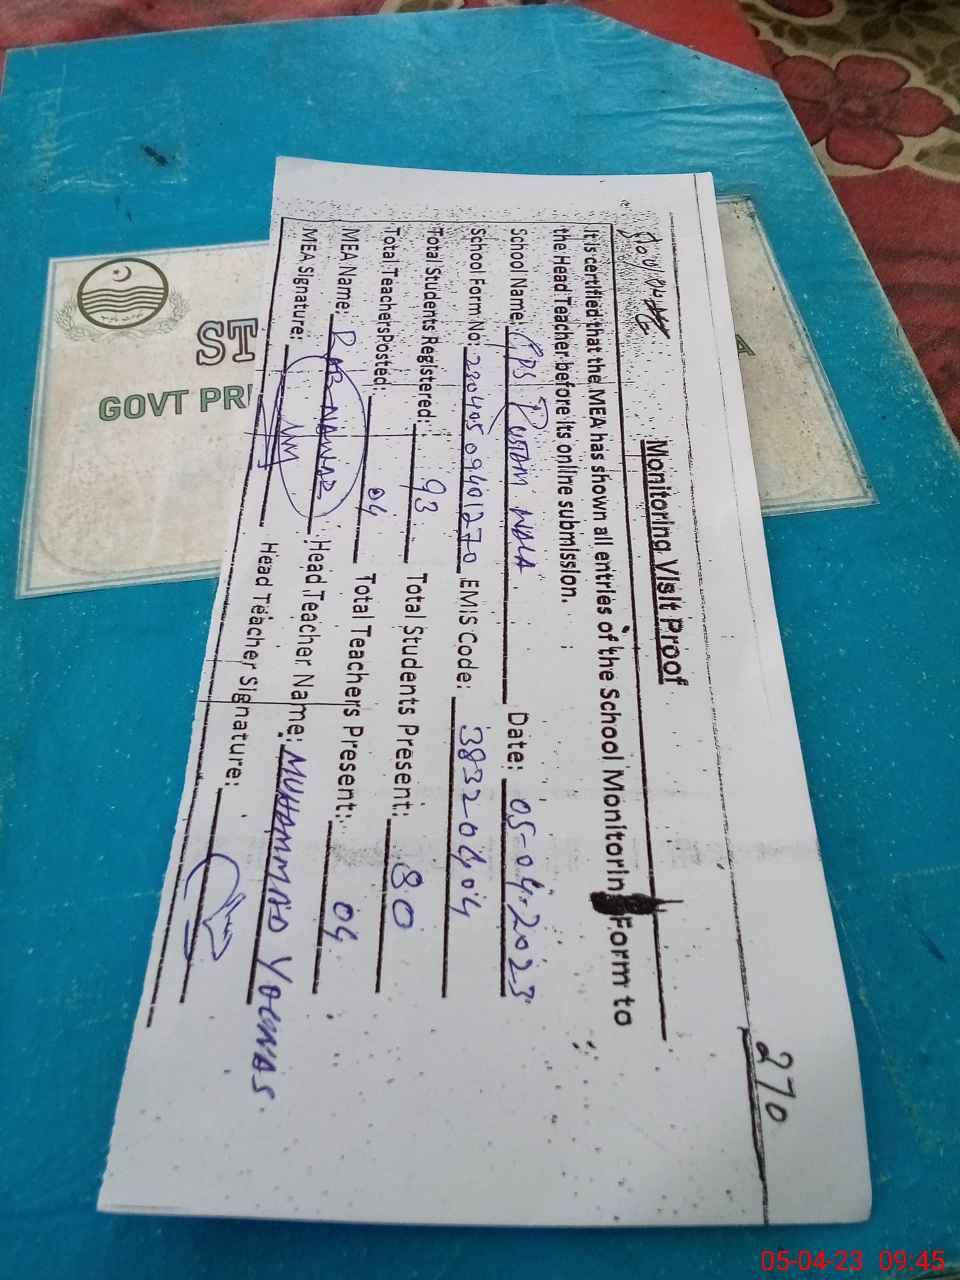 270
Monitoring Visit Proof
It is certified that the MEA has shown all entries of the School Monitoring Form to
the Head Teacher before its online submission.
School Name: GPS Rustam Wala Date: 05-04-2023
School Form No: 280405 09401270 EMIS Code: 38320404
Total Students Registered: 93 Total Students Present: 80
Total Teachers Posted: 04 Total Teachers Present: 04
MEA Name: RAB NAWAZ Head Teacher Name: MUHAMMAD YOUNAS
MEA Signature: Head Teacher Signature:
ST
GOVT PRI
A
05-04-23 09:45